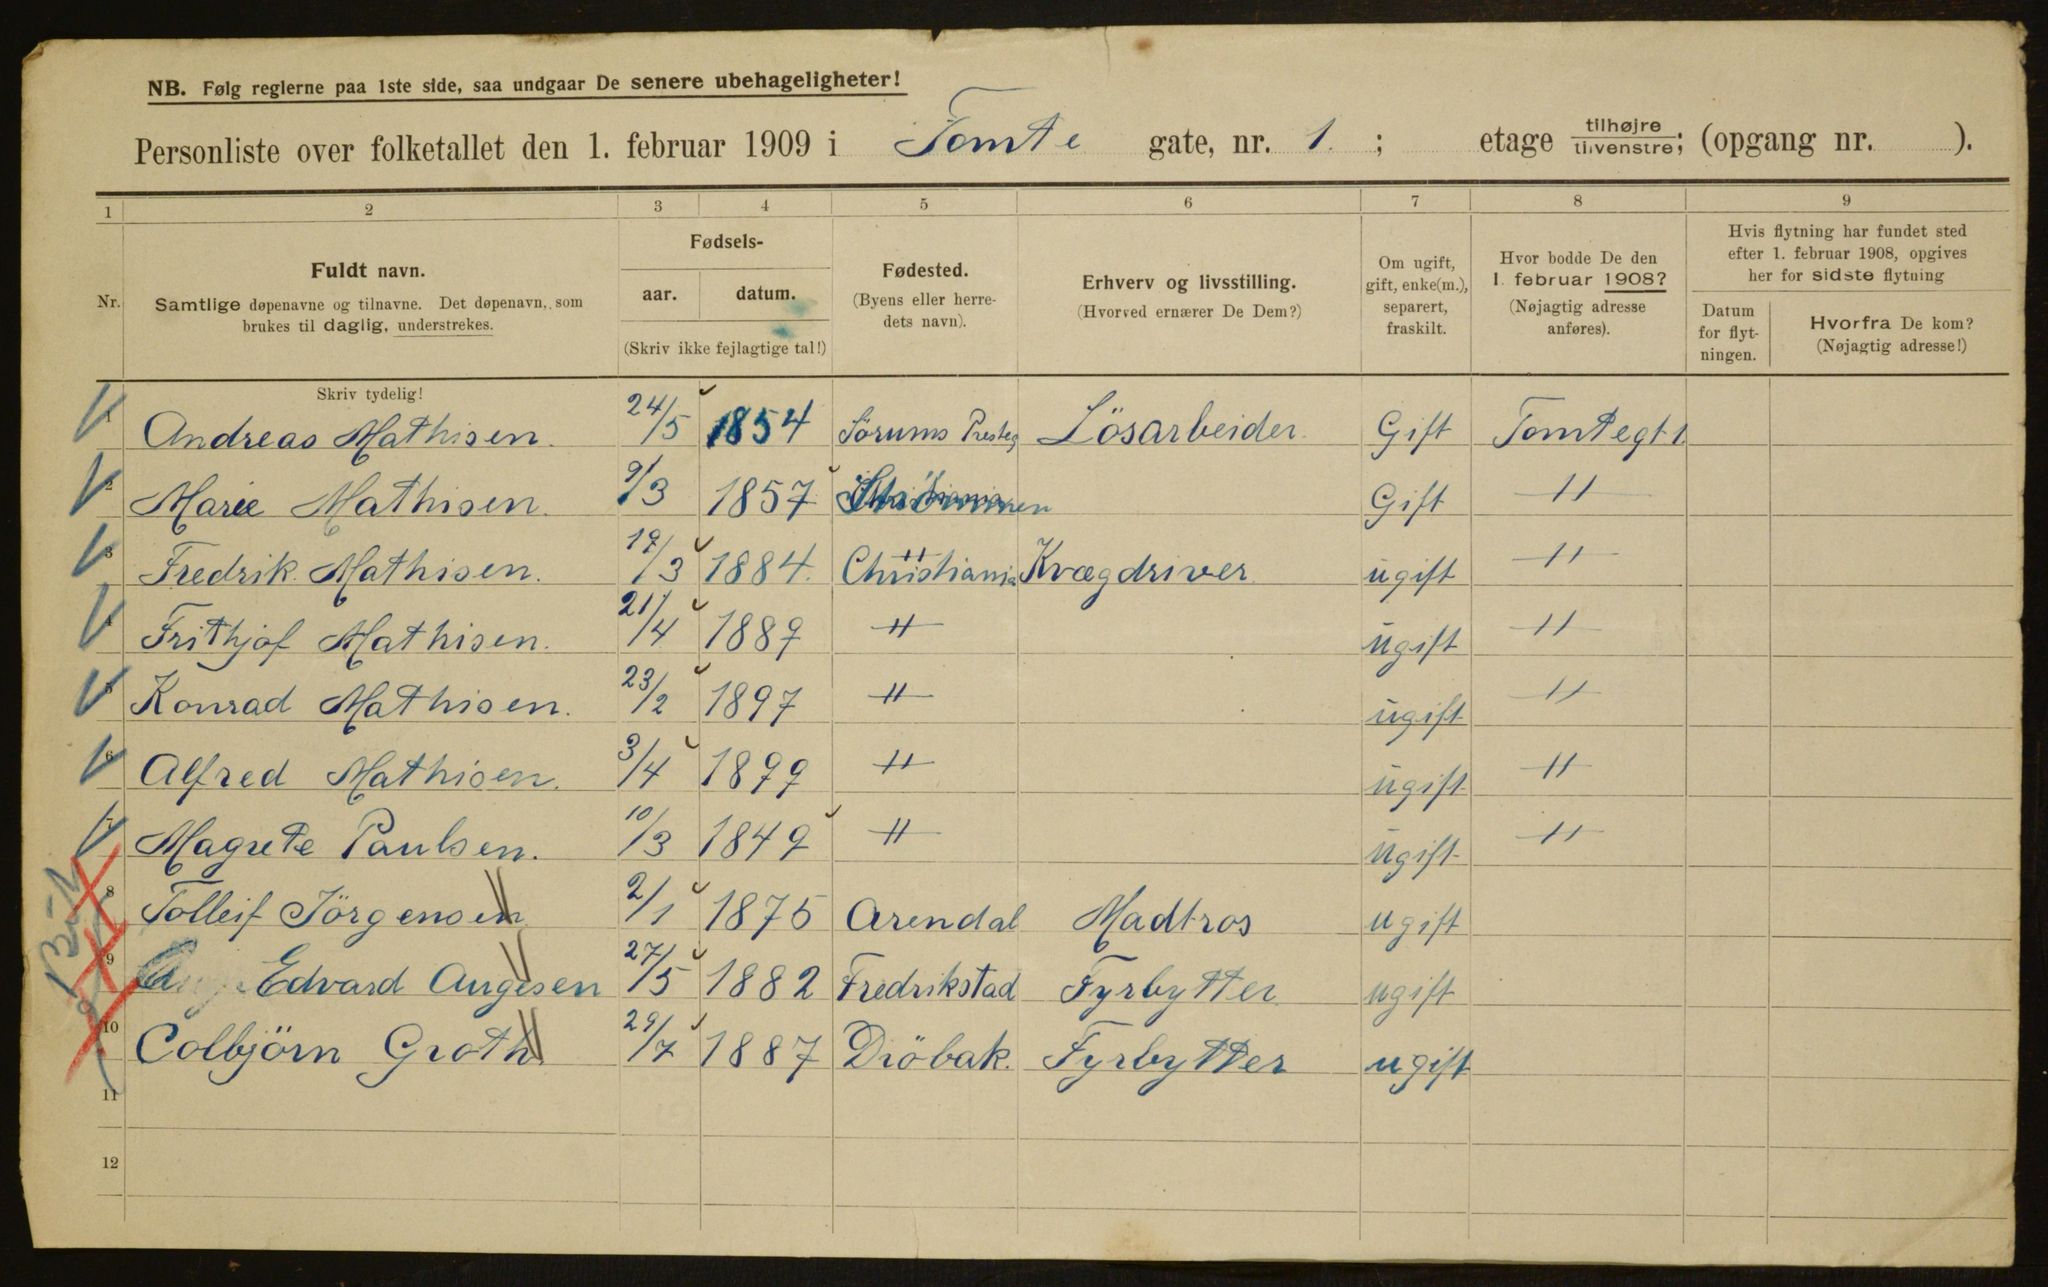 NB. Følg reglerne paa 1ste side, saa undgaar De senere ubehageligheter!
Personliste over folketallet den 1. februar 1909 i Tomte gate, nr. 1. ; etage tilhøjre tilvenstre; (opgang nr. ).
1 2 3 4 5 6 7 8 9
Nr. Fuldt navn. Samtlige døpenavne og tilnavne. Det døpenavn, som brukes til daglig, understrekes.
Fødsels- aar. datum. (Skriv ikke fejlagtige tal!)
Fødested. (Byens eller herredets navn).
Erhverv og livsstilling. (Hvorved ernærer De Dem?)
Om ugift, gift, enke(m.), separert, fraskilt.
Hvor bodde De den 1. februar 1908? (Nøjagtig adresse anføres).
Hvis flytning har fundet sted efter 1. februar 1908, opgives her for sidste flytning
Datum for flytningen. Hvorfra De kom? (Nøjagtig adresse!)
Skriv tydelig!
1 Andreas Mathisen. 24/5 1854 Sørums Presteg Lösarbeider. Gift Tomtegt 1
2 Marie Mathisen. 9/3 1857 Strömmen Gift "
3 Fredrik Mathisen. 19/3 1884. Christiania Kvægdriver ugift "
4 Frithjof Mathisen. 21/4 1889 " ugift "
5 Konrad Mathisen. 23/2 1897 " ugift "
6 Alfred Mathisen. 3/4 1899 " ugift "
7 Magrete Paulsen. 10/3 1849 " ugift "
8 Tolleif Jörgensen 2/1 1875 Arendal Madtros ugift
9 Edvard Augesen 27/5 1882 Fredrikstad Fyrbytter ugift
10 Colbjörn Groth. 29/7 1887 Dröbak. Fyrbytter ugift
11
12